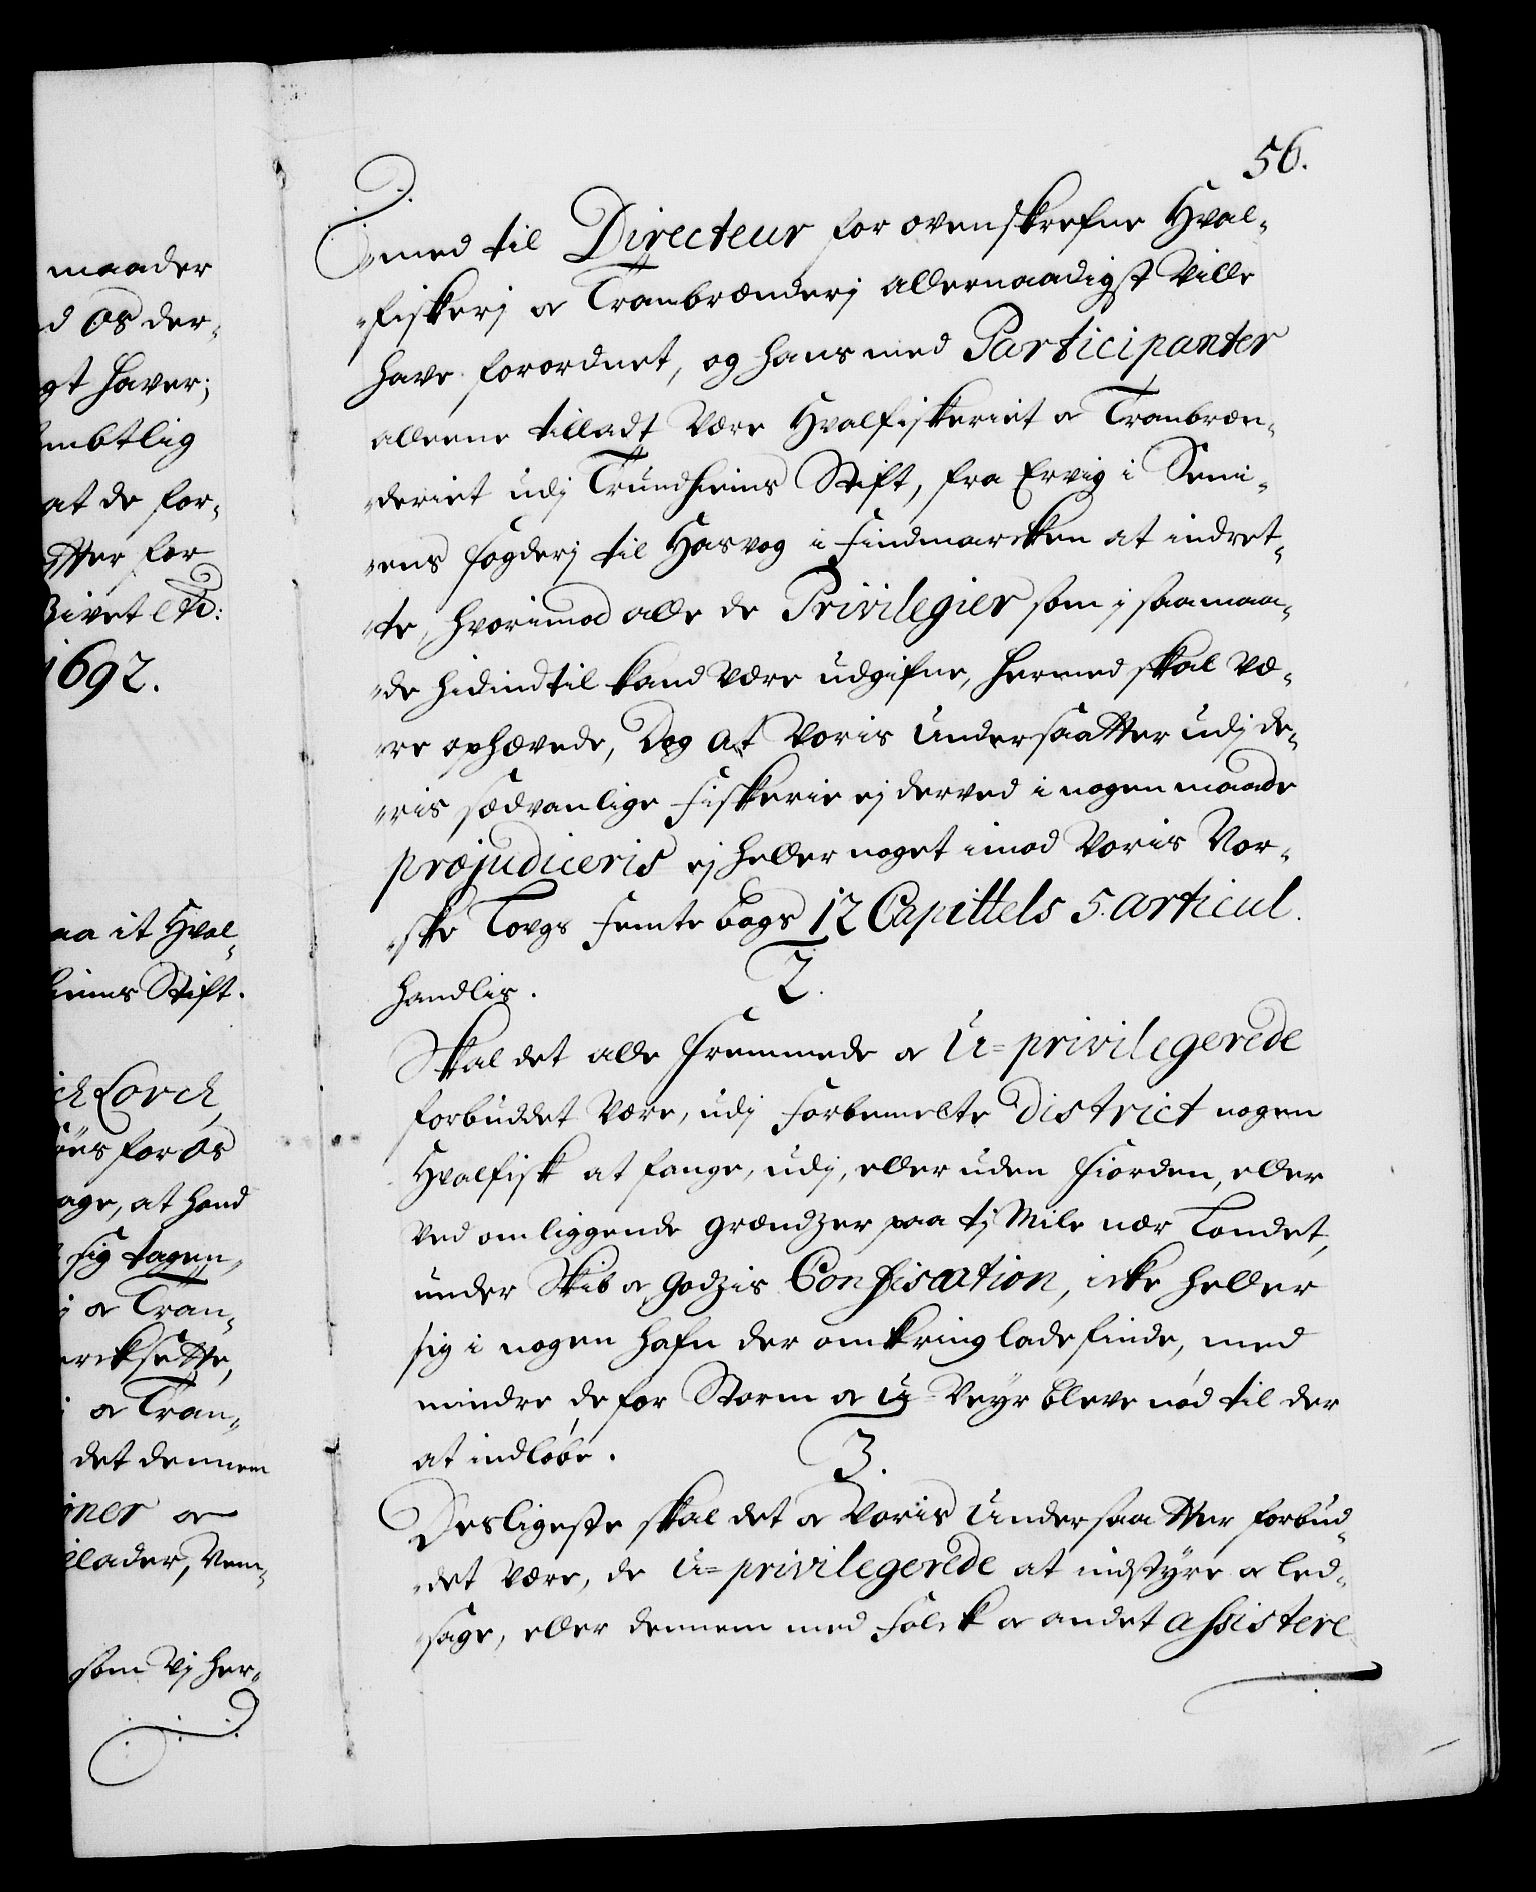 maader
d os der-
gt haver;
embtlig
at de for-
etter for
Givet etc:
1692.
aa it Hval-
hiems Stift.
ich Lorck,
for os
age, at hand
sig tagen,
i oc Tran-
ercksette,
i oc Tran-
det dennem
iner oc
ilader, Vem-
som Vj her-
56.
med til Directeur for ovenskrefne Hval-
fiskerj oc Tranbrænderj allernaadigst Ville
have forordnet, og hans med Participanter
alleene tilladt være Hvalfiskeriet oc Tranbræn-
deriet udj Trundhiems Stift, fra Ervig i Seni-
ens fogderj til Hasvog i Findmarcken at indret-
te, hvorimod alle de Privilegier som j saamaa-
de hidindtil kand være udgifne, hermed skal væ-
re ophævede, Dog at Voris Undersaatter udj de-
ris sædvanlige Fiskerie ej derved i nogen maade
præjudiceris ej heller noget imod Voris Nor-
ske Lovgs Femte bogs 12 Capittels 5. articul.
handlis.
2.
Skal det alle fremmede oc U=privilegerede
forbuddet være, udj Forbemelte District nogen
Hvalfisk at fange, udj, eller uden Fiorden, eller
ved omliggende Grændzer paa tj Mile nær Landet,
under Skib oc Godzis Confiscation, icke heller
sig i nogen hafn der omkring lade finde, med
mindre de for Storm oc U=Veyr bleve nød til der
at indløbe.
3.
Desligeste skal det oc Voris Undersaatter forbud-
det være, de U=privilegerede at indstyre oc led-
sage, eller dennem med Folck oc andet assistere